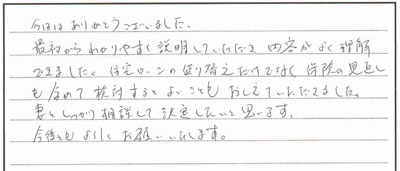 今日は ありがとうございました。
最初から わかりやすく 説明していただき 内容が よく 理解
できました。住宅ローンの 借り替えだけでなく 保険の 見直し
も 含めて 検討すると よいことも おしえていただきました。
妻と しっかり 相談して 決定したいと 思います。
今後とも よろしく お願いいたします。